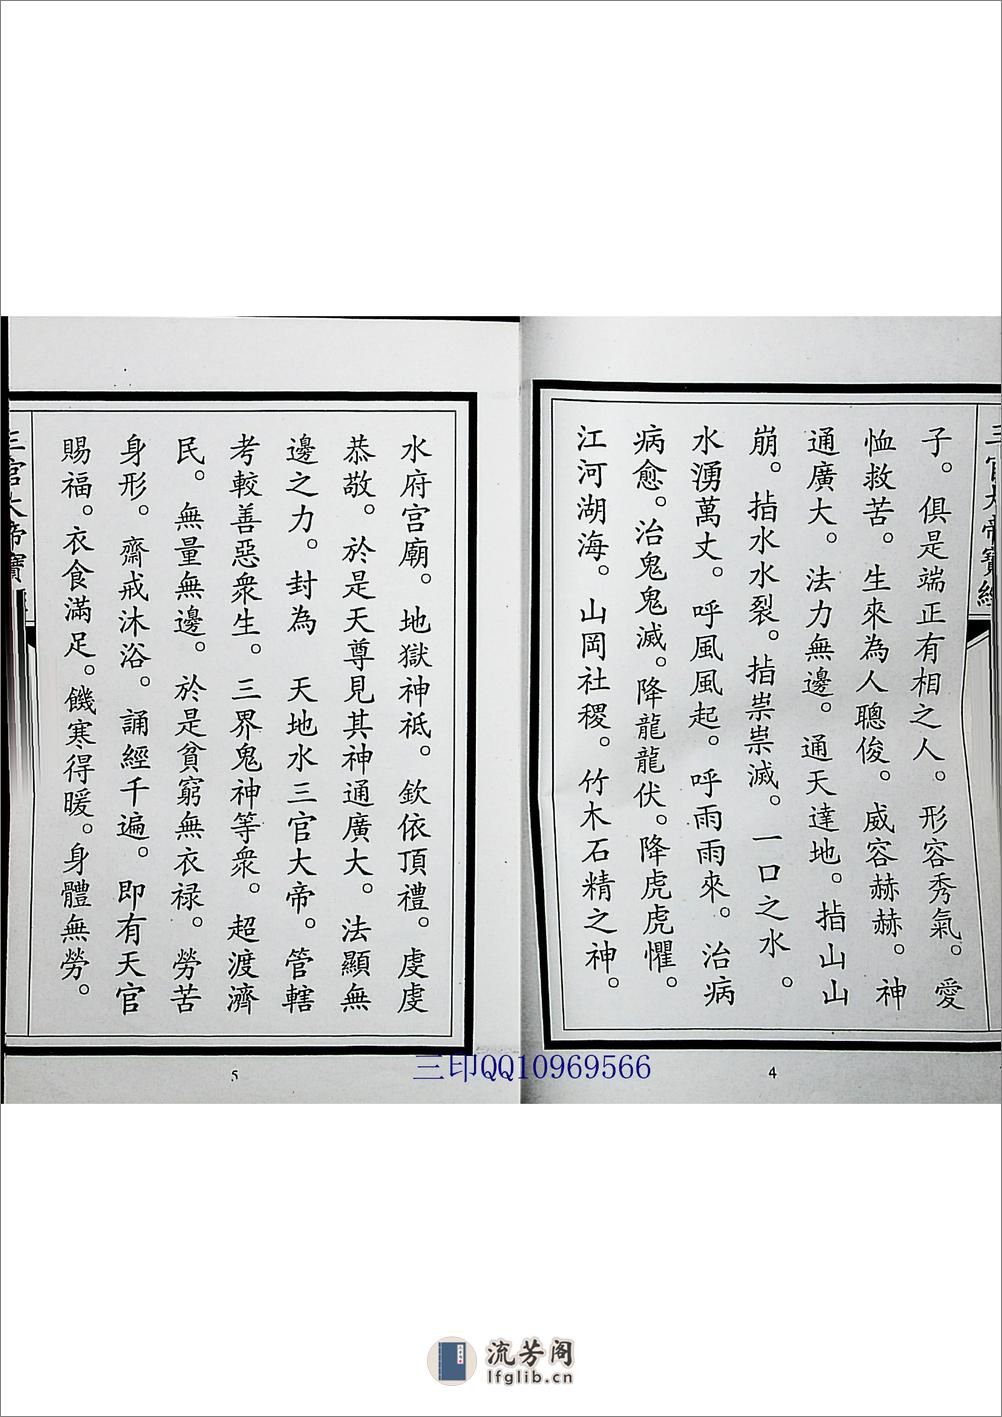 三官大帝寶經
子。俱是端正有相之人。形容秀氣。愛
恤救苦。生來為人聰俊。威容赫赫。神
通廣大。法力無邊。通天達地。指山山
崩。指水水裂。指祟祟滅。一口之水。
水湧萬丈。呼風風起。呼雨雨來。治病
病愈。治鬼鬼滅。降龍龍伏。降虎虎懼。
江河湖海。山岡社稷。竹木石精之神。
4
水府宫廟。地獄神祗。欽依頂禮。虔虔
恭敬。於是天尊見其神通廣大。法顯無
邊之力。封為　天地水三官大帝。管轄
考較善惡衆生。三界鬼神等衆。超渡濟
民。無量無邊。於是貧窮無衣禄。勞苦
身形。齋戒沐浴。誦經千遍。即有天官
賜福。衣食滿足。饑寒得暖。身體無勞。
三官大帝寶
5
三印QQ10969566
流芳阁
lfglib.cn